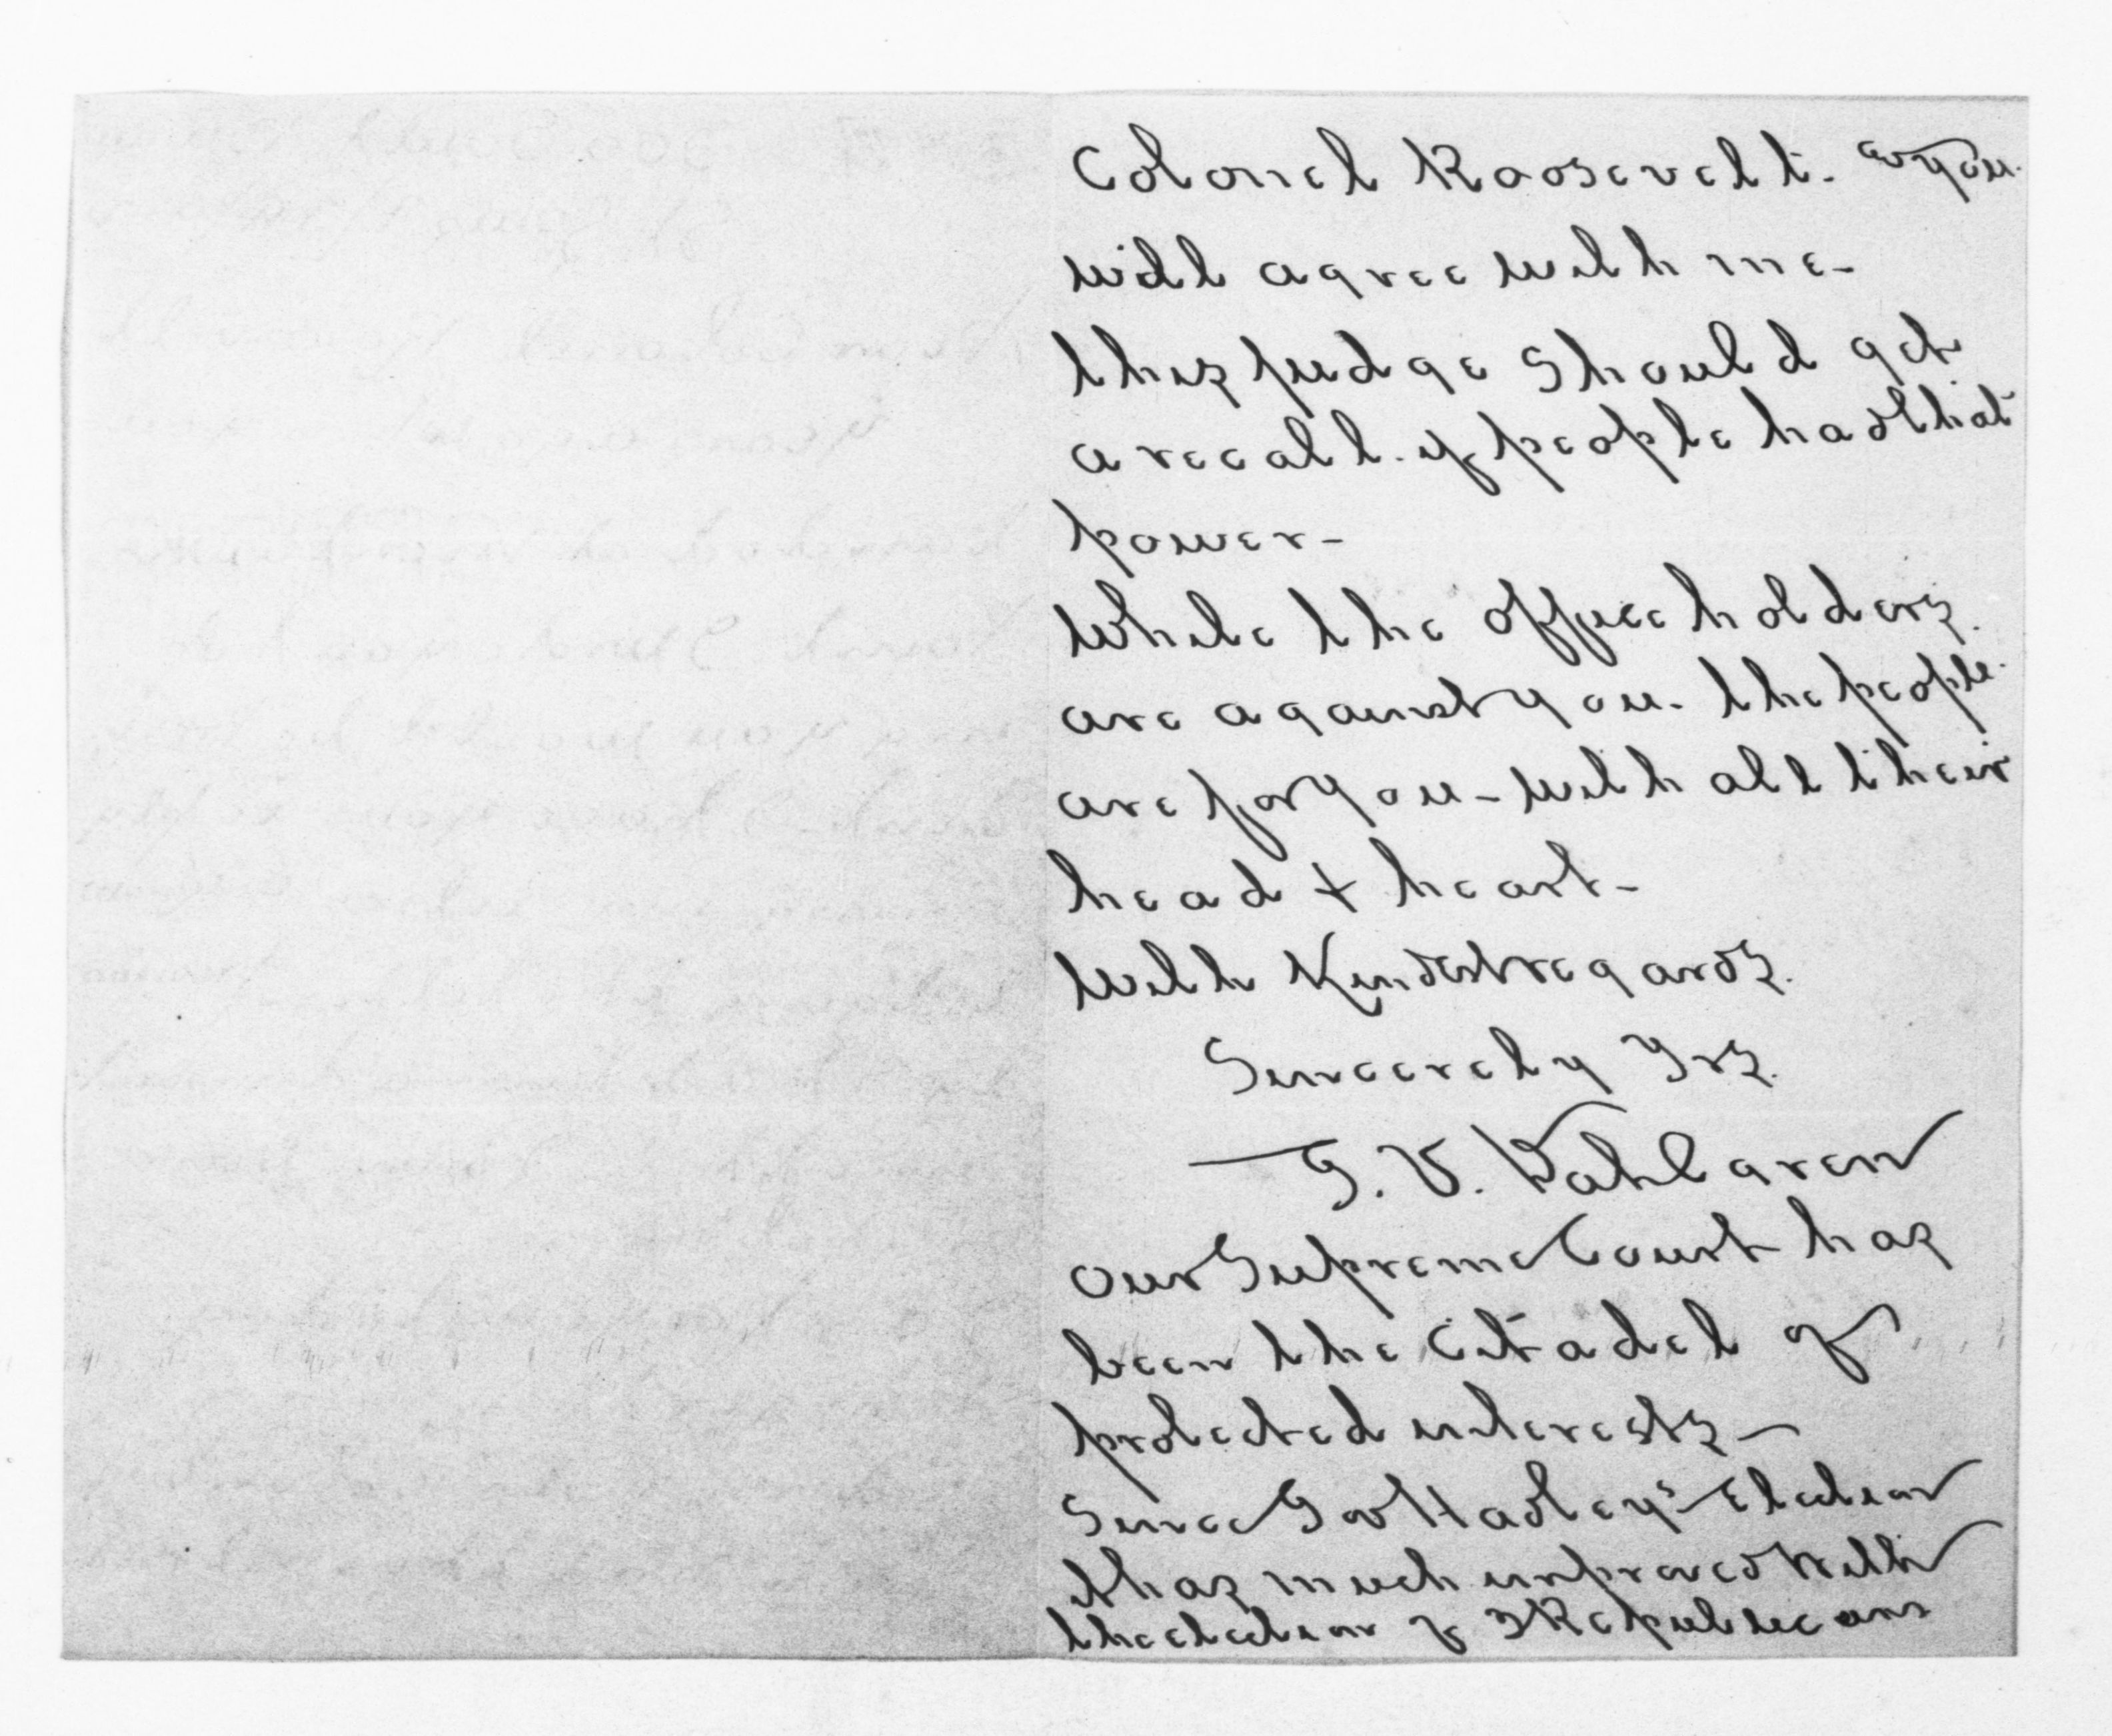 Colonel Roosevelt. as you
will agree with me-
this judge should get
a recall. if people had that
power-
While the office holders.
are against you. the people.
are for you - with all their
head + heart-
With Kindest regards.
Sincerely Yrs.
Our Supreme Court has
been the Citadel of
protected interests-
Since Gov Hadley's Election
it has much improved with
the election of 3 Republicans